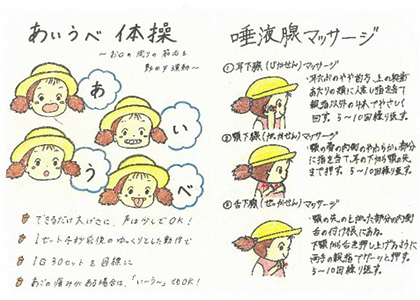 あいうべ 体操
～お口の周りの筋肉を
動かす運動～
あ
い
う
べ
できるだけ大げさに、声は少しでOK!
1セット4秒前後のゆっくりとした動作で
1日30セットを目標に
あごの痛みがある場合は、「いーうー」でもOK!
唾液腺マッサージ
①耳下腺(じかせん)マッサージ
・耳たぶのやや前方、上の奥歯
あたりの頬に人差し指を当て
親指以外の4本でやさしく
回す。5～10回繰り返す。
②顎下腺(がっかせん)マッサージ
・顎の骨の内側のやわらかい部分
に指を当て、耳の下から顎の先
まで押す。5～10回繰り返す。
③舌下腺(ぜっかせん)マッサージ
・顎の先のとがった部分の内側
舌の付け根にある。
下顎から舌を押し上げるように
両手の親指でグーッと押す。
5～10回繰り返す。